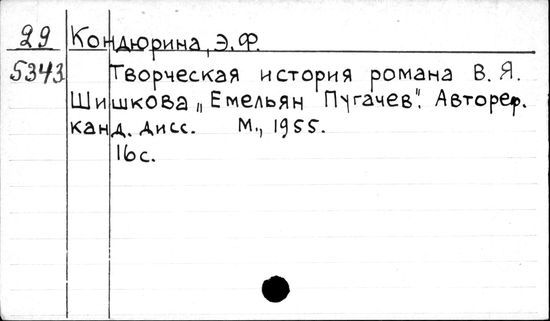 29 Кондюрина, Э.Ф.
5343 Творческая история романа В. Я.
Шишкова „Емельян Пугачев". Автореф.
канд. дисс. М., 1955.
16с.